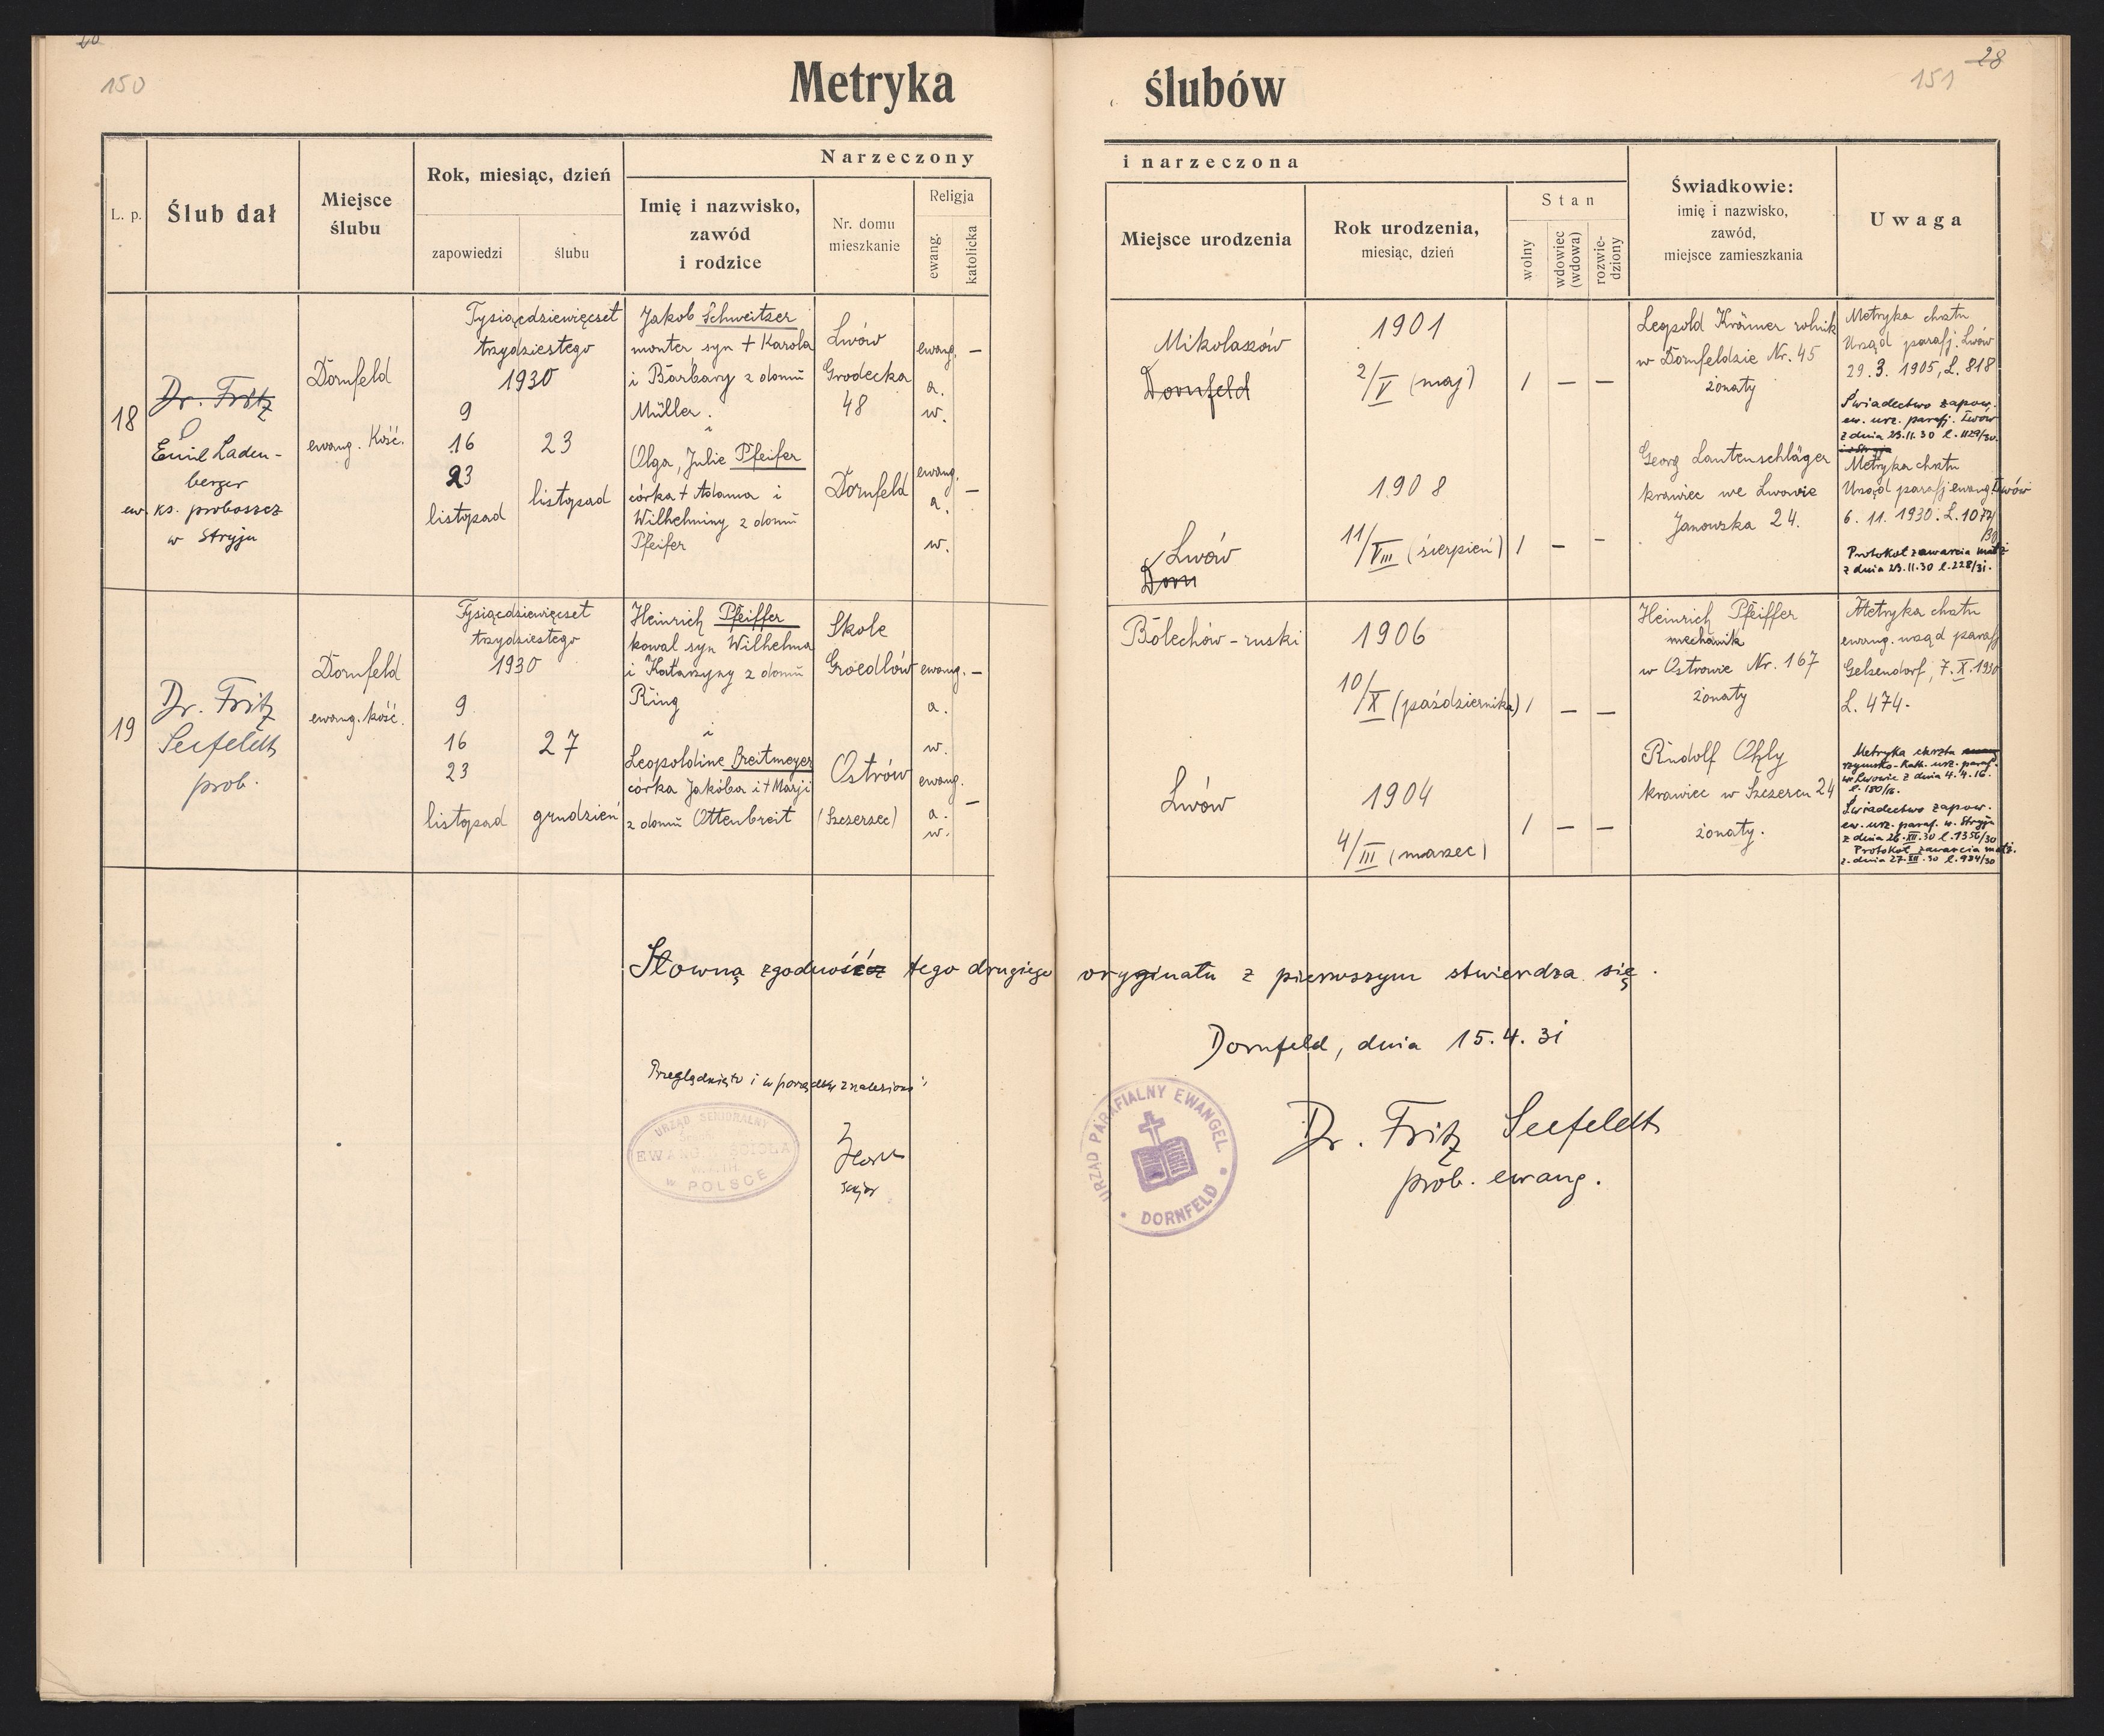 150
Metryka
L. p.
Ślub dał
Miejsce
ślubu
Rok, miesiąc, dzień
zapowiedzi
ślubu
Narzeczony
Imię i nazwisko,
zawód
i rodzice
Nr. domu
mieszkanie
Religja
ewang.
katolicka
18
Dr. Fritz
Emil Laden-
berger
ew. ks. proboszcz
w Stryju
Dornfeld
ewang. Kość.
Tysiącdziewięcset
trzydziestego
1930
9
16
23
listopad
23
listopad
Jakob Schweitzer
monter syn + Karola
i Barbary z domu
Müller.
i
Olga, Julie Pfeifer
córka + Adama i
Wilhelminy z domu
Pfeifer
Lwów
Grodecka
48
Dornfeld
ewang. –
a.
w.
ewang. –
a.
w.
19
Dr. Fritz
Seefeldt
prob.
Dornfeld
ewang. kość.
Tysiącdziewięcset
trzydziestego
1930
9
16
23
listopad
27
grudzień
Heinrich Pfeiffer
kowal syn Wilhelma
i Katarzyny z domu
Ring
i
Leopoldine Breitmeyer
córka Jakóba i + Marji
z domu Ottenbreit
Skole
Groedlów
Ostrów
(Szczerzec)
ewang. –
a.
w.
ewang. –
a.
w.
Słowną zgodność tego drugiego
Przeglądnięto i w porządku znaleziono:
URZĄD SENIORALNY
w POLSCE
151
28
ślubów
i narzeczona
Miejsce urodzenia
Rok urodzenia,
miesiąc, dzień
Stan
wolny
wdowiec
(wdowa)
rozwie-
dziony
Świadkowie:
imię i nazwisko,
zawód,
miejsce zamieszkania
Uwaga
Mikolaszów
Dornfeld
1901
2/V (maj)
1 – –
Leopold Krämer rolnik
w Dornfeldzie Nr. 45
żonaty
Metryka chrztu
Urząd parafj. Lwów
29. 3. 1905, L. 818
Świadectwo zapow.
ew. urz. parafj. Lwów
z dnia 23.11.30 l. 1129/30.
Lwów
Dorn
1908
11/VIII (sierpień)
1 – –
Georg Lautenschläger
krawiec we Lwowie
Janowska 24.
Metryka chrztu
Urząd parafj ewang. Lwów
6. 11. 1930. L. 1077/30
Protokoł zawarcia małż
z dnia 23.11.30 l. 228/31.
Bolechów-ruski
1906
10/X (października)
1 – –
Heinrich Pfeiffer
mechanik
w Ostrowie Nr. 167
żonaty
Metryka chrztu
ewang. urząd parafj
Gelsendorf, 7. X. 1930
L. 474-
Lwów
1904
4/III (marzec)
1 – –
Rudolf Ohly
krawiec w Szczercu 24
żonaty.
Metryka chrztu
rzymsko-kath. urz. paraf.
we Lwowie z dnia 4. 4. 16.
l. 180/16.
Świadectwo zapow.
ew. urz. paraf. w. Stryju
z dnia 26.XII.30 l. 1356/30
Protokoł zawarcia małż.
z. dnia 27.XII.30 l. 984/30
oryginału z pierwszym stwierdza się.
Dornfeld, dnia 15.4.31
URZĄD PARAFIALNY EWANGEL.
DORNFELD
Dr. Fritz Seefeldt
prob. ewang.